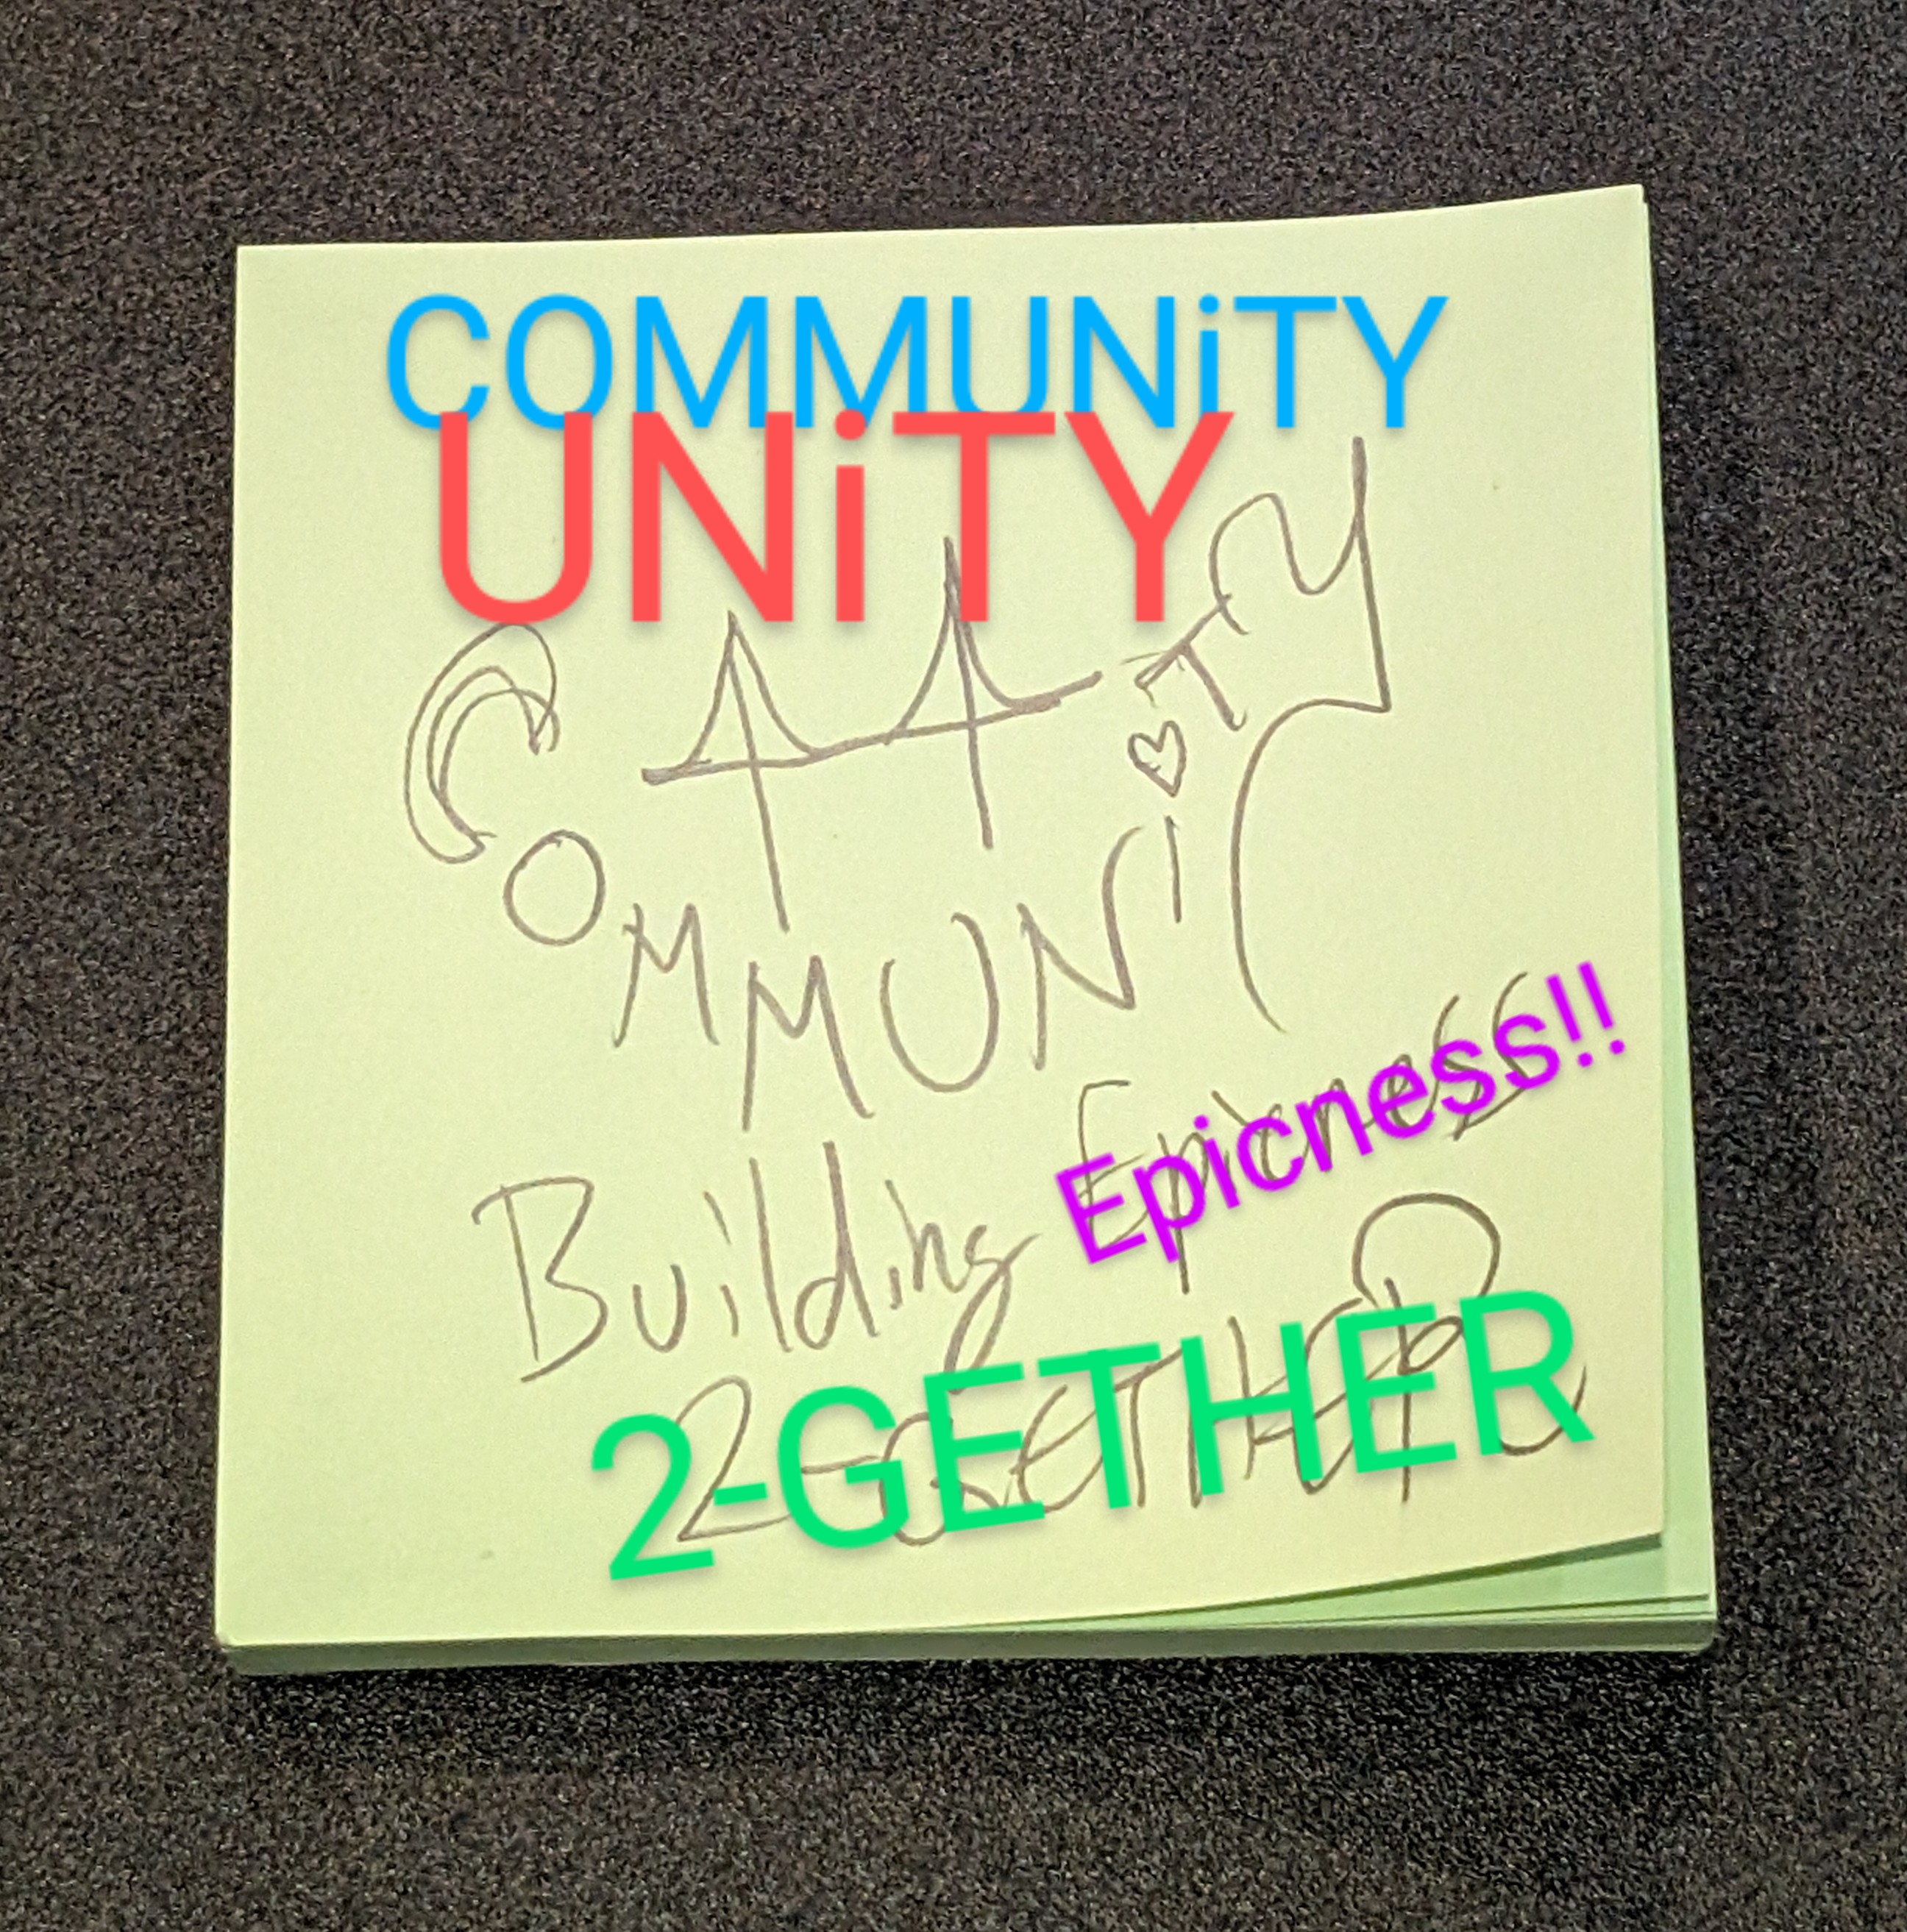 COMMUNiTY
UNiTY
COMMUNiTY
Building Epicness
Epicness!!
2-GETHER
2-GETHER